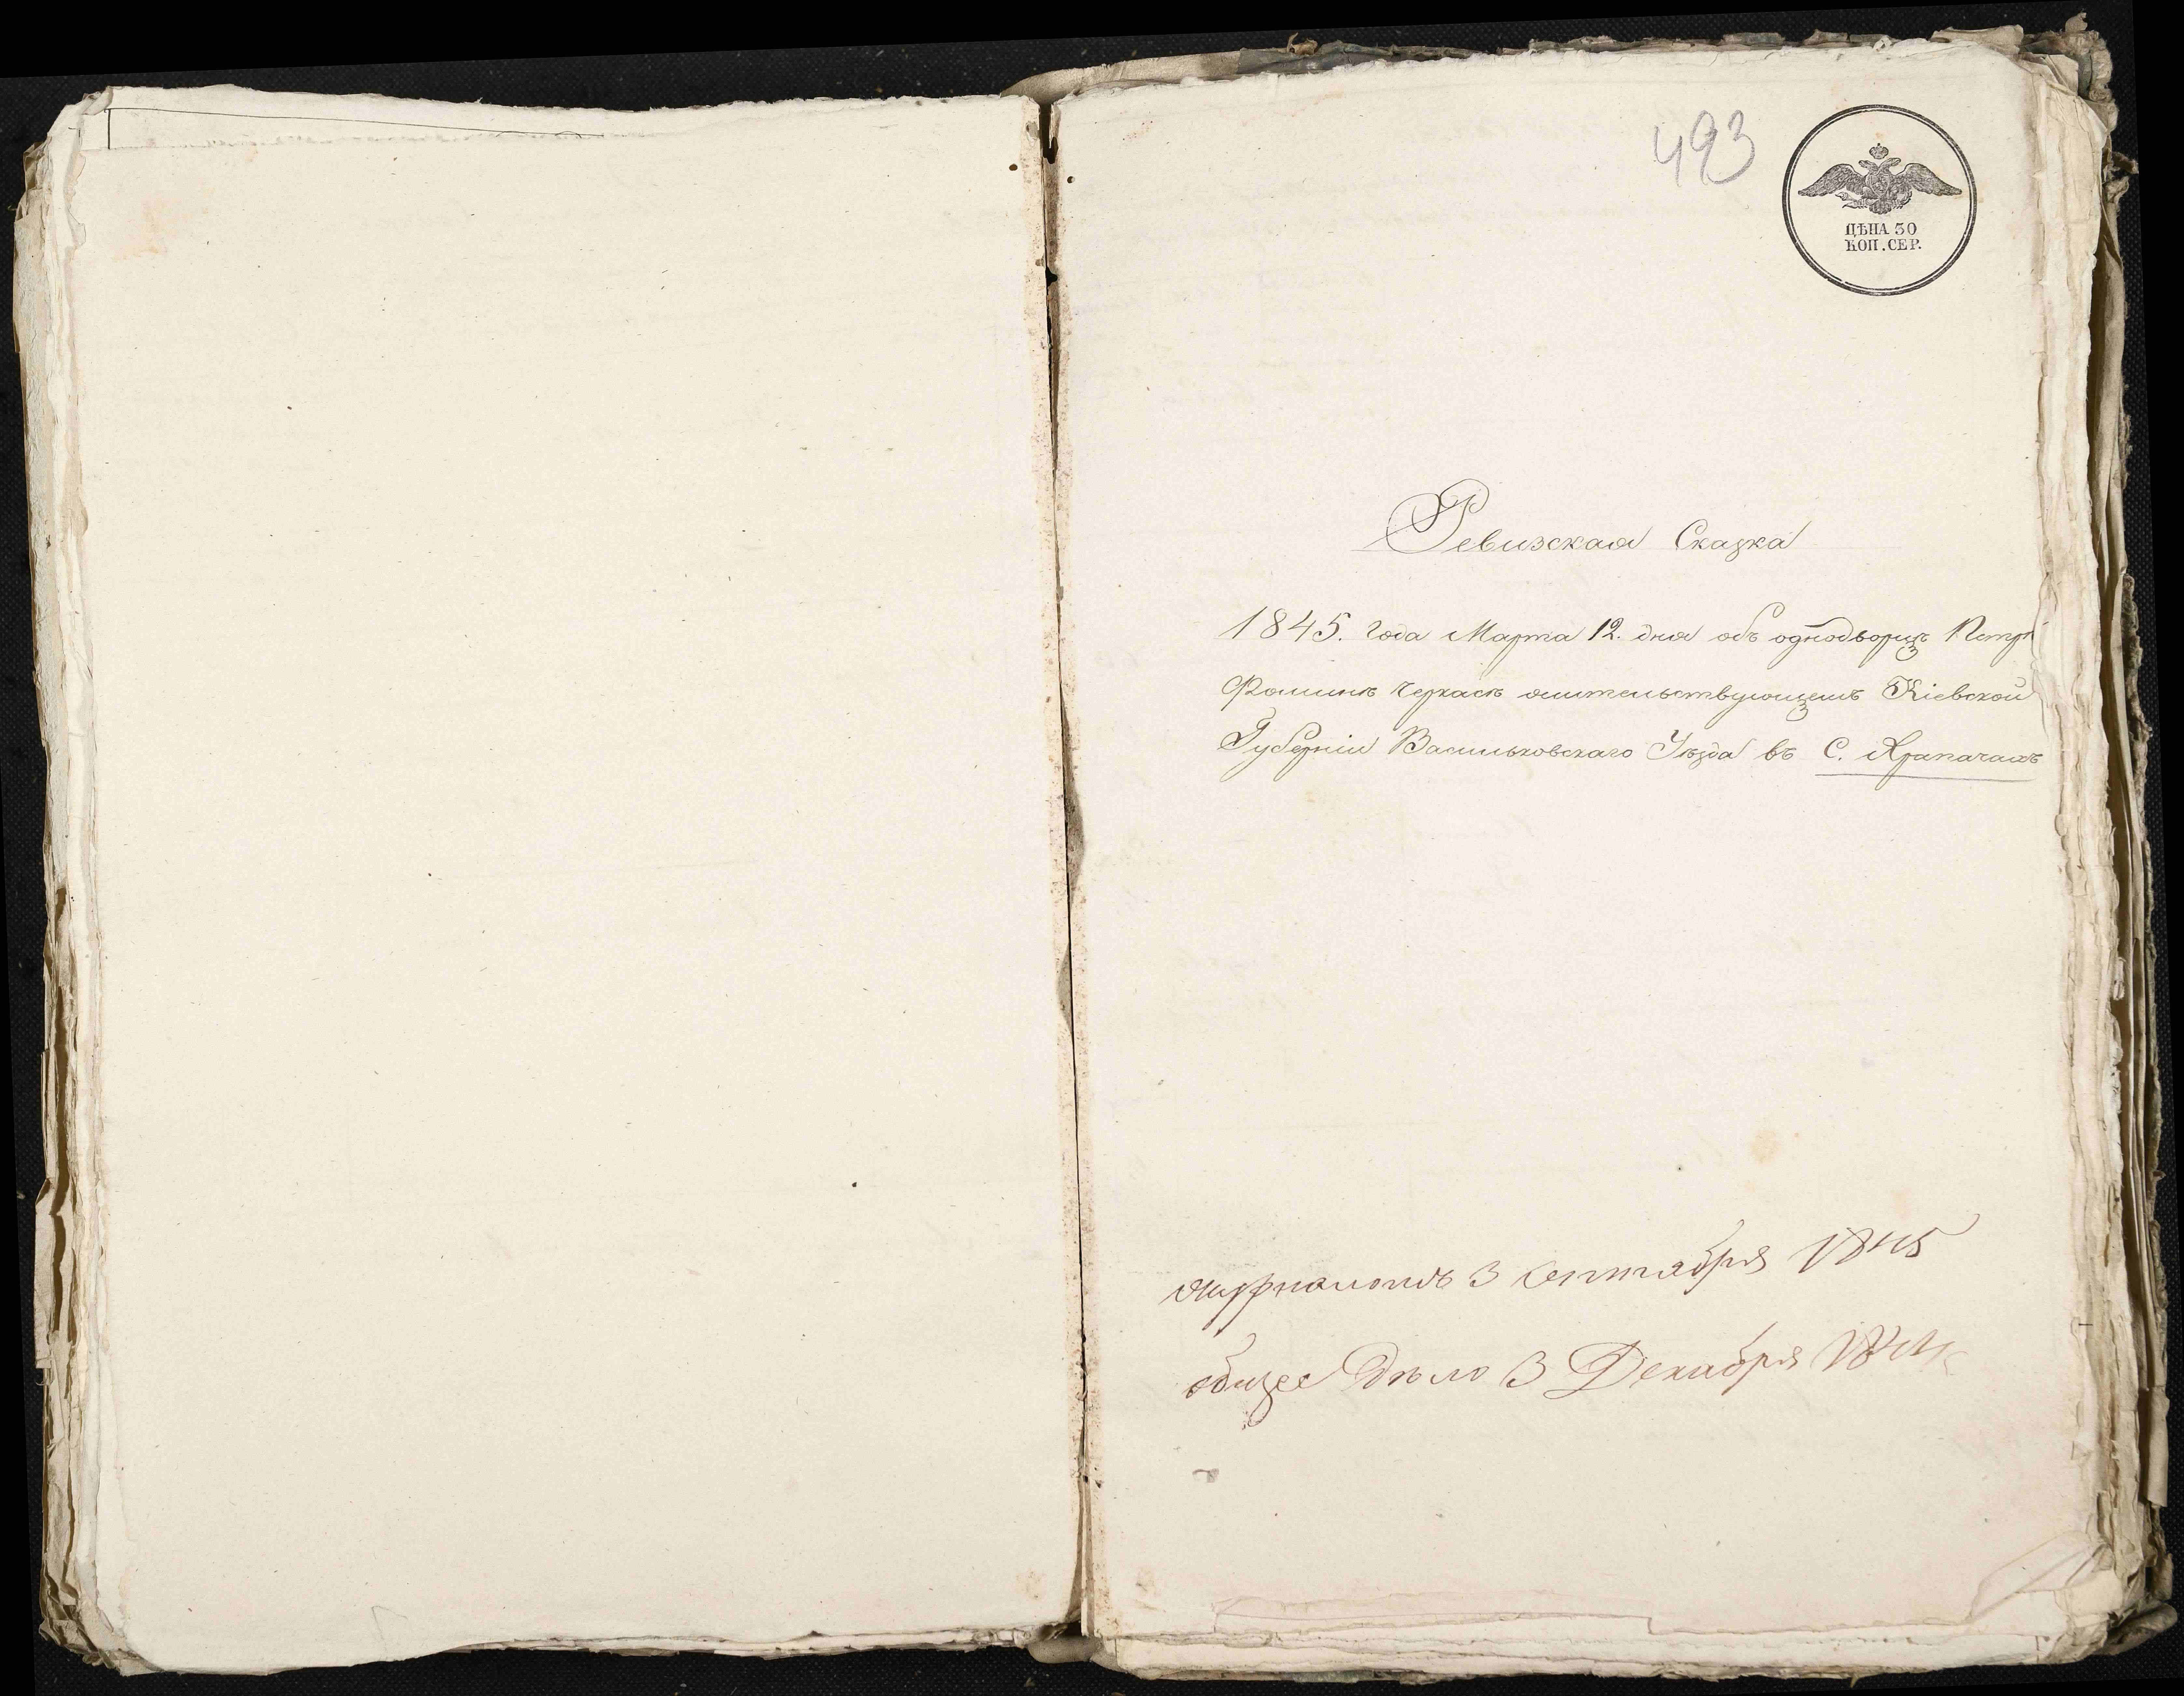 493
ЦѢНА 30
КОП. СЕР.
Ревизская Сказка
1845. года Марта 12. дня объ однодворцѣ Петрѣ
Фоминѣ Черкасѣ жительствующемъ Кіевской
Губерніи Васильковскаго Уѣзда въ С. Крапачахъ
журналомъ 3 Сентября 1845
общее дѣло 3 Декабря 1844